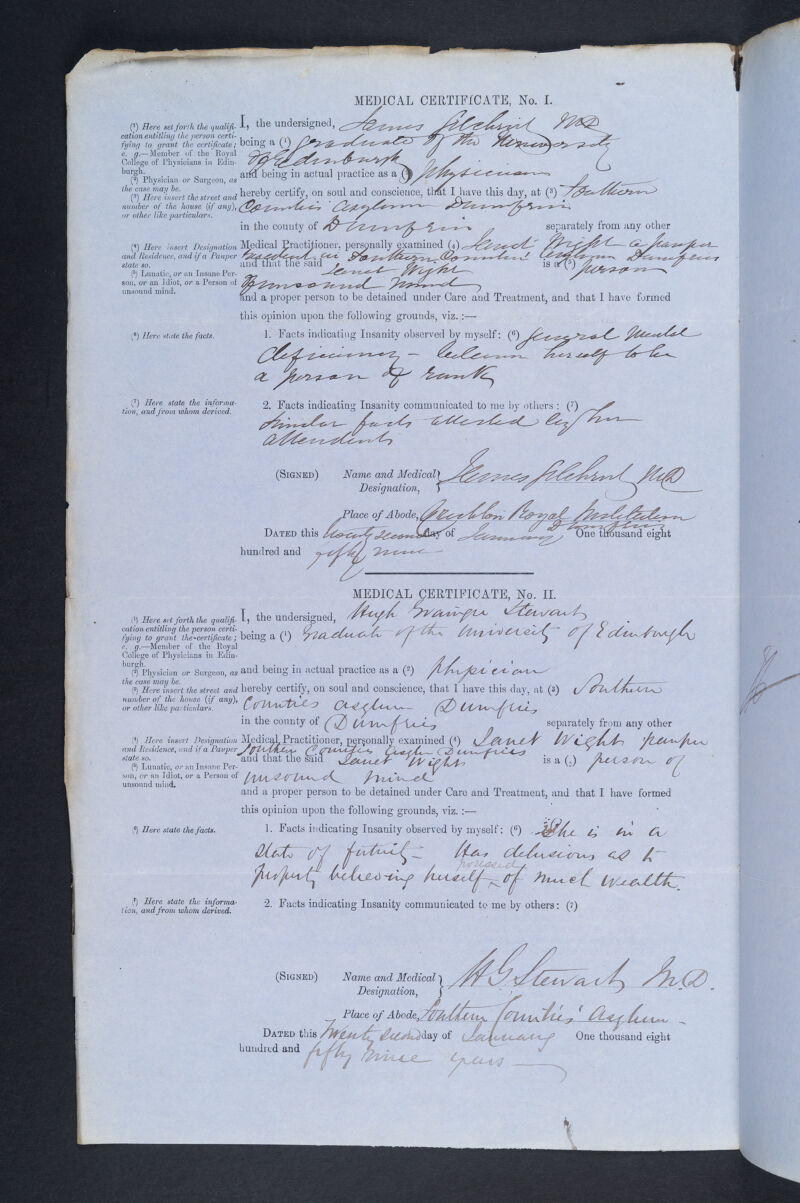 MEDICAL CERTIFICATE, No. I.
(1) Here set forth the qualifi-
cation entitling the person certi-
fying to grant the certificate;
e. g.—Member of the Royal
College of Physicians in Edin-
burgh.
(2) Physician or Surgeon, as
the case may be.
(3) Here insert the street and
number of the house (if any),
or other like particulars.
(4) Here insert Designation
and Residence, and if a Pauper
state so.
(5) Lunatic, or an Insane Per-
son, or an Idiot, or a Person of
unsound mind.
(6) Here state the facts.
(7) Here state the informa-
tion, and from whom derived.
I, the undersigned, James Gilchrist MD
being a (1) Graduate of the University
of Edinburgh
and being in actual practice as a (2) Physician
hereby certify, on soul and conscience, that I have this day, at (3) Southern
Counties Asylum Dumfries
in the county of Dumfries separately from any other
Medical Practitioner, personally examined (4) Janet Wight a pauper
Resident in Southern Counties Asylum Dumfries
and that the said Janet Wight is a (5) person
of unsound mind
and a proper person to be detained under Care and Treatment, and that I have formed
this opinion upon the following grounds, viz. :—
1. Facts indicating Insanity observed by myself: (6) General Mental
deficiency – believes herself to be
a person of rank
2. Facts indicating Insanity communicated to me by others: (7)
Similar facts attested by her
attendants
(SIGNED) Name and Medical Designation, James Gilchrist MD
Place of Abode, Crichton Royal Institution
Dumfries
DATED this twenty second day of January One thousand eight
hundred and fifty nine
MEDICAL CERTIFICATE, No. II.
(1) Here set forth the qualifi-
cation entitling the person certi-
fying to grant the certificate;
e. g.—Member of the Royal
College of Physicians in Edin-
burgh.
(2) Physician or Surgeon, as
the case may be.
(3) Here insert the street and
number of the house (if any),
or other like particulars.
(4) Here insert Designation
and Residence, and if a Pauper
state so.
(5) Lunatic, or an Insane Per-
son, or an Idiot, or a Person of
unsound mind.
(6) Here state the facts.
(7) Here state the informa-
tion, and from whom derived.
I, the undersigned, Hugh Grainger Stewart
being a (1) Graduate of the University of Edinburgh
and being in actual practice as a (2) physician
hereby certify, on soul and conscience, that I have this day, at (3) Southern
Counties Asylum Dumfries
in the county of Dumfries separately from any other
Medical Practitioner, personally examined (4) Janet Wight pauper
Southern Counties Asylum Dumfries
and that the said Janet Wight is a (5) person of
unsound mind
and a proper person to be detained under Care and Treatment, and that I have formed
this opinion upon the following grounds, viz. :—
1. Facts indicating Insanity observed by myself: (6) She is in a
state of fatuity – Has delusions as to
property believing herself possessed of much wealth.
2. Facts indicating Insanity communicated to me by others: (7)
(SIGNED) Name and Medical Designation, H G Stewart M.D.
Place of Abode, Southern Counties' Asylum –
DATED this Twenty second day of January One thousand eight
hundred and fifty nine years